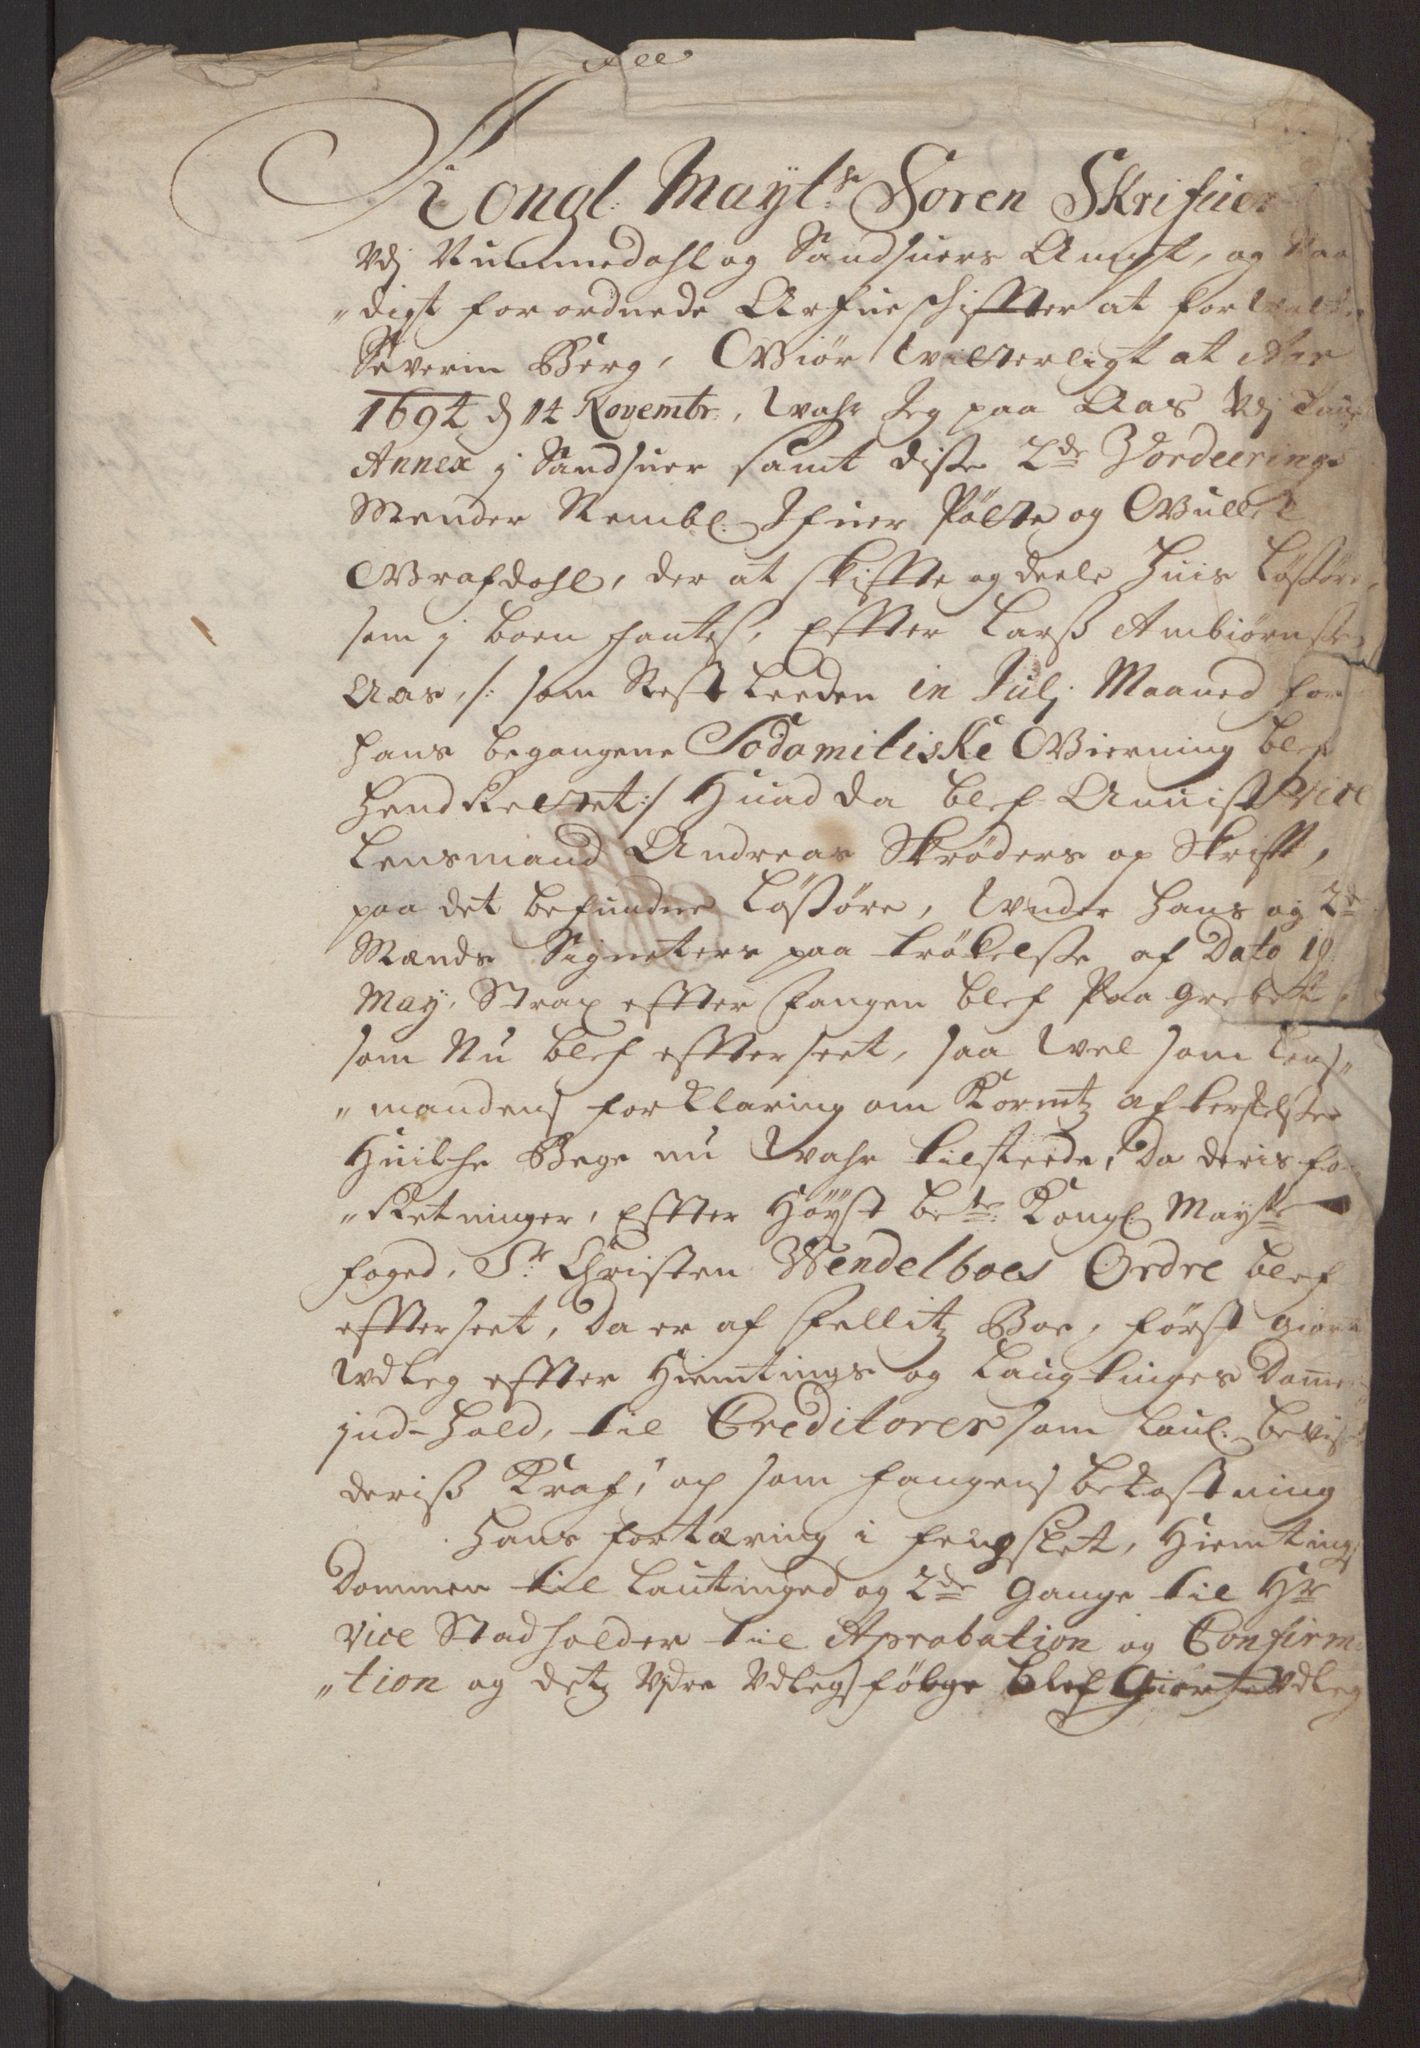 Kongl: Mayts Soren Skrifuer
Vdj Nummedahl og Sandsuers Ampt, og Naa
"digt forordnede Arfueschiffter at forvalte
Severin Berg, Giør Witterligt at Aar
1694 d 14 Novembr, Wahr Jeg paa Aas Vdj
Annex j Sandsuer samt disse 2de Vordeerings
Mender Rembl. Ifuer Pålte og Gullel
Grafdahl, der at skiffte og deele huis løsøre,
som j boen fantes, Effter Larss Ambiørnsen
Aas, /: som Nest leeden in Julj Maaned for
hans begangene Sodomitiske Gierning blef
Hendrettet :/ Huad da blef Anuist Vice
Lensmand Andreas Skrøders op Skrifft,
paa det befundne Løssøre, Wnder hans og 2de
Mænds Signeters paa trøkelsse af Dato 19
May, Strax effter fangen blef Paa grebet,
som Nu blef effterseet, saa Wel som Lens"
"mandens forklaring om Korntz afterskelssen
Huilche Bege nu Wahr tilsteede, Da deris for
"Retninger, Effter Høyst bete: Kongl. Mayts
foged, Sr. Christen Wendelboes Ordre blef
effterseet, Da er af Fellitz Boe, først giort
Vdleg effter Hiemtings og Laugtinges Dommers
jnd-hold, til Creditorer som Laul. bevist
deriss Kraf, op som fangens bekostning
hans fortæring i fengslet, Hiemtings
Dommen til Lautinged og 2de Gange til Hr
Vice Stadholder til Aprobation og Confirma
"tion og detz Vjdre Vdlegs følge blef Giort Vdleg